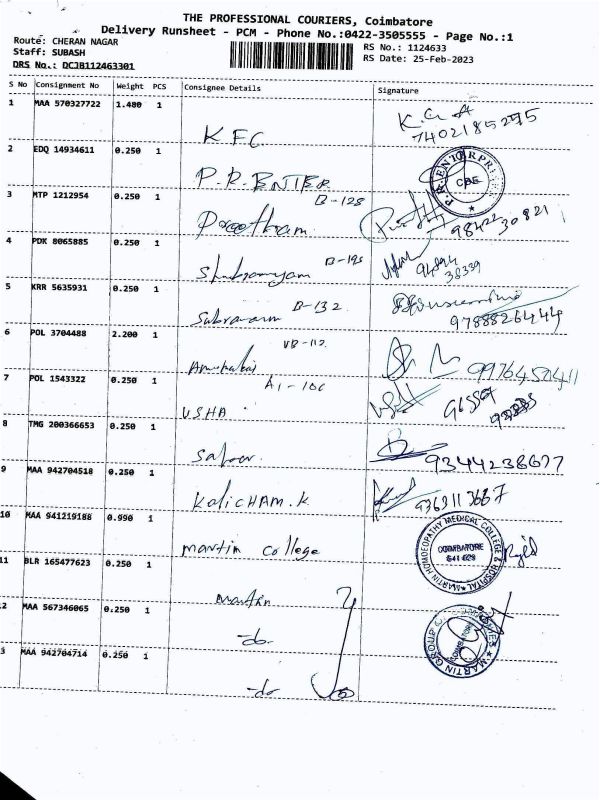 THE PROFESSIONAL COURIERS, Coimbatore
Delivery Runsheet - PCM - Phone No.:0422-3505555 - Page No.:1
Route: CHERAN NAGAR
Staff: SUBASH
DRS No.: DCJB112463301
RS No.: 1124633
RS Date: 25-Feb-2023
S No Consignment No Weight PCS Consignee Details Signature
1 MAA 570327722 1.480 1
KFC
7402185295
2 EDQ 14934611 0.250 1
P.R. ENTER
P.R ENTERPRISES CBE
3 MTP 1212954 0.250 1
B-128
Preetham
9842230821
4 PDK 8065885 0.250 1
B-195
5 KRR 5635931 0.250 1
B-132
9788826444
6 POL 3704488 2.200 1
VB-112
7 POL 1543322 0.250 1
A1-106
USHA
8 TMG 200366653 0.250 1
9344238677
9 MAA 942704518 0.250 1
KaliCHAM.K
10 MAA 941219188 0.990 1
martin College
MARTIN HOMOEOPATHY MEDICAL COLLEGE & HOSPITAL
COIMBATORE
641 029
11 BLR 165477623 0.250 1
martin
2 MAA 567346065 0.250 1
-do-
MARTIN GROUP
3 MAA 942704714 0.250 1
-do